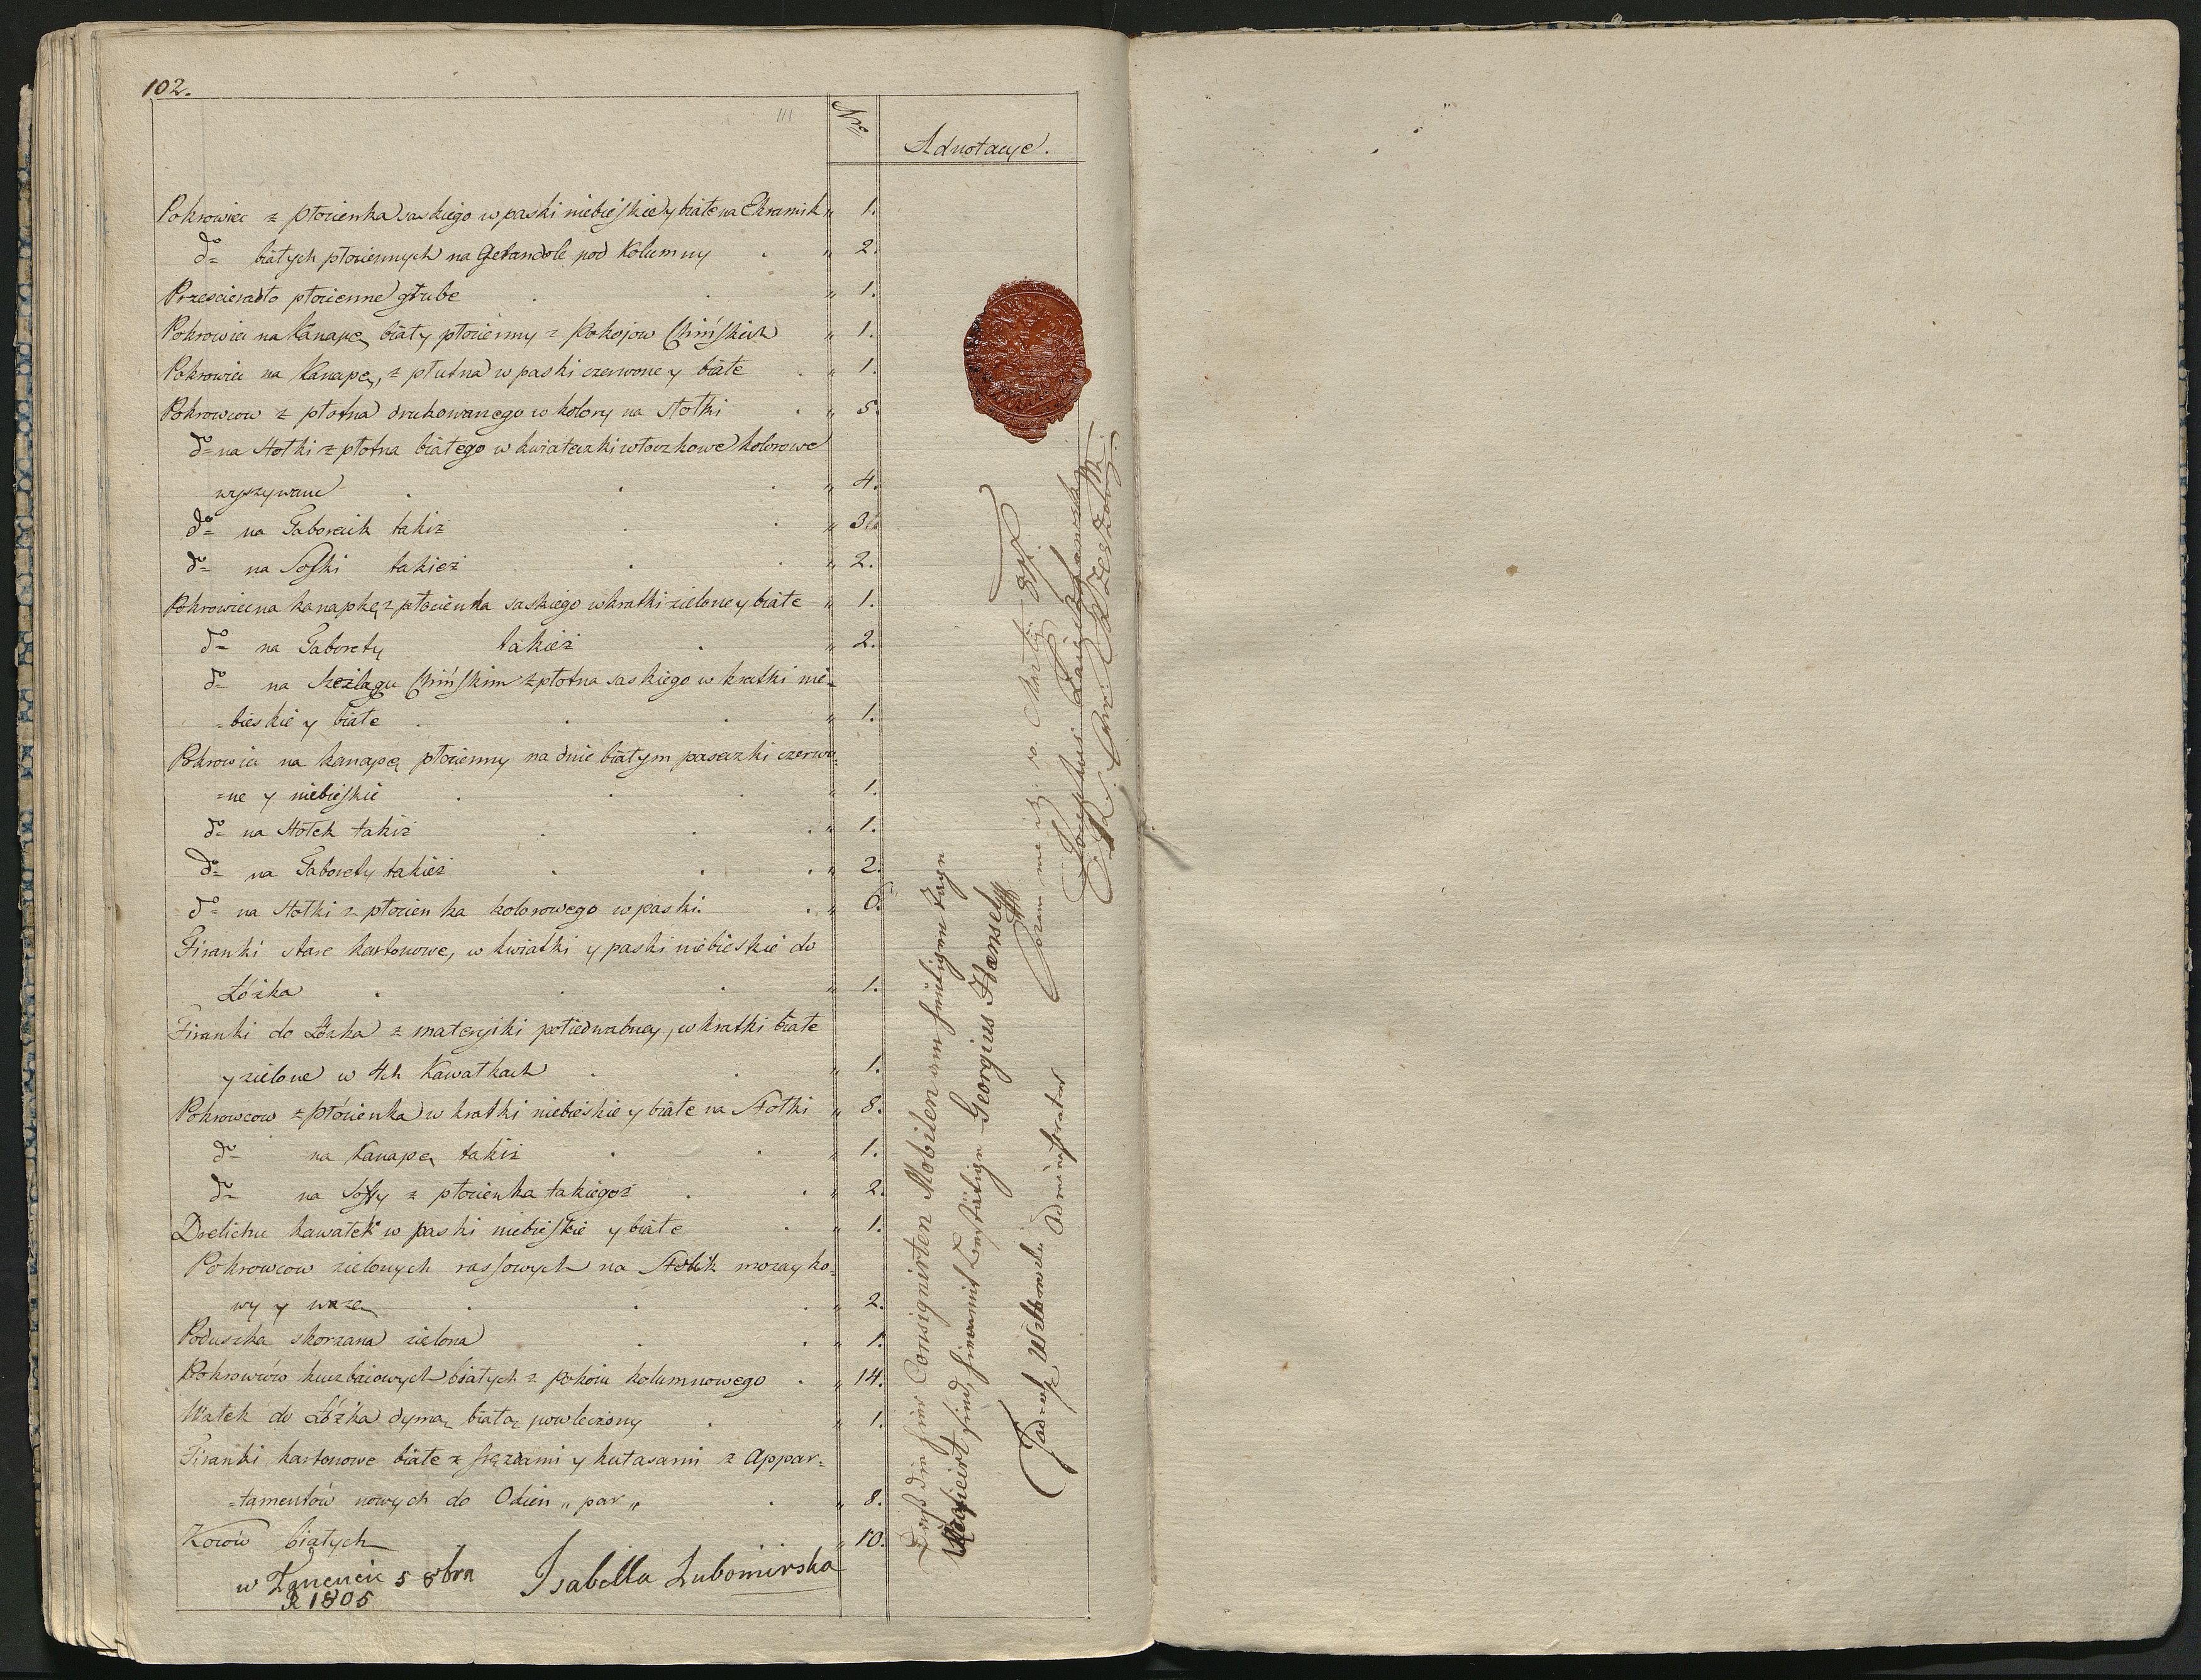 102.
Nro
Adnotacye.
Pokrowiec z płocienka saskiego w paski niebieskie y białe na Ekranik „ 1.
do białych płociennych na Gerandole pod Kolumny . „ 2.
Przescieradło płocienne grube . . „ 1.
Pokrowiec na Kanapę biały płocienny z Pokojow Chińskich „ 1.
Pokrowiec na Kanapę, z płutna w paski czerwone y białe . „ 1.
Pokrowcow z płotna drukowanego w kolory na stołki . „ 5.
do na Stołki z płotna białego w kwiateczki włoczkowe kolorowe
wyszywane . . . „ 4.
do na Taborecik takiż . . „
do na Sofki takież . . „ 2.
Pokrowiec na kanapkę z płocienka saskiego w kratki zielone y białe „ 1.
do na Taborety takież . „ 2.
do na Szezlągu Chińskim z płotna saskiego w kratki nie-
=bieskie y białe . . . „ 1.
Pokrowiec na kanapę płocienny na dnie białym paseczki czerwo=
=ne y niebieskie . . . „ 1.
do na Stołek takiż . . . „ 1.
do na Taborety takież . . . „ 2.
do na Stołki z płocienka kolorowego w paski . . „ 6.
Firanki stare kartonowe, w kwiatki y paski niebieskie do
Łóżka . . . „ 1.
Firanki do Łózka z materyiki połiedwabney, w kratki białe
y zielone w 4ch Kawałkach . . „ 1.
Pokrowcow z płócienka w kratki niebieskie y białe na Stołki „ 8.
do na Kanapę takiż . . „ 1.
do na Soffy z płocienka takiegoż . . „ 2.
Drelichu kawałek w paski niebieskie y białe . „ 1.
Pokrowcow zielonych rassowych na Stolik mozayko=
wy y wazę . . . „ 2.
Poduszka skorzana zielona . . „ 1.
Pokrowców kuczbaiowych białych z pokoiu kolumnowego . „ 14.
Wałek do Łóżka dymą białą powleczony . „ 1.
Firanki kartonowe białe z fręzlami y kutasami z Appar=
=tamentów nowych do Okien „ par „ . „ 8.
Koców białych „ 10.
w Łancucie 5 8bra
R 1805
Isabella Lubomirska
Daß die hier Consignirten Mobilien am heutigen Tage
sind, hiermit bestätige Georgius Haensel
Tadeusz Administrator
Coram me
Josephus